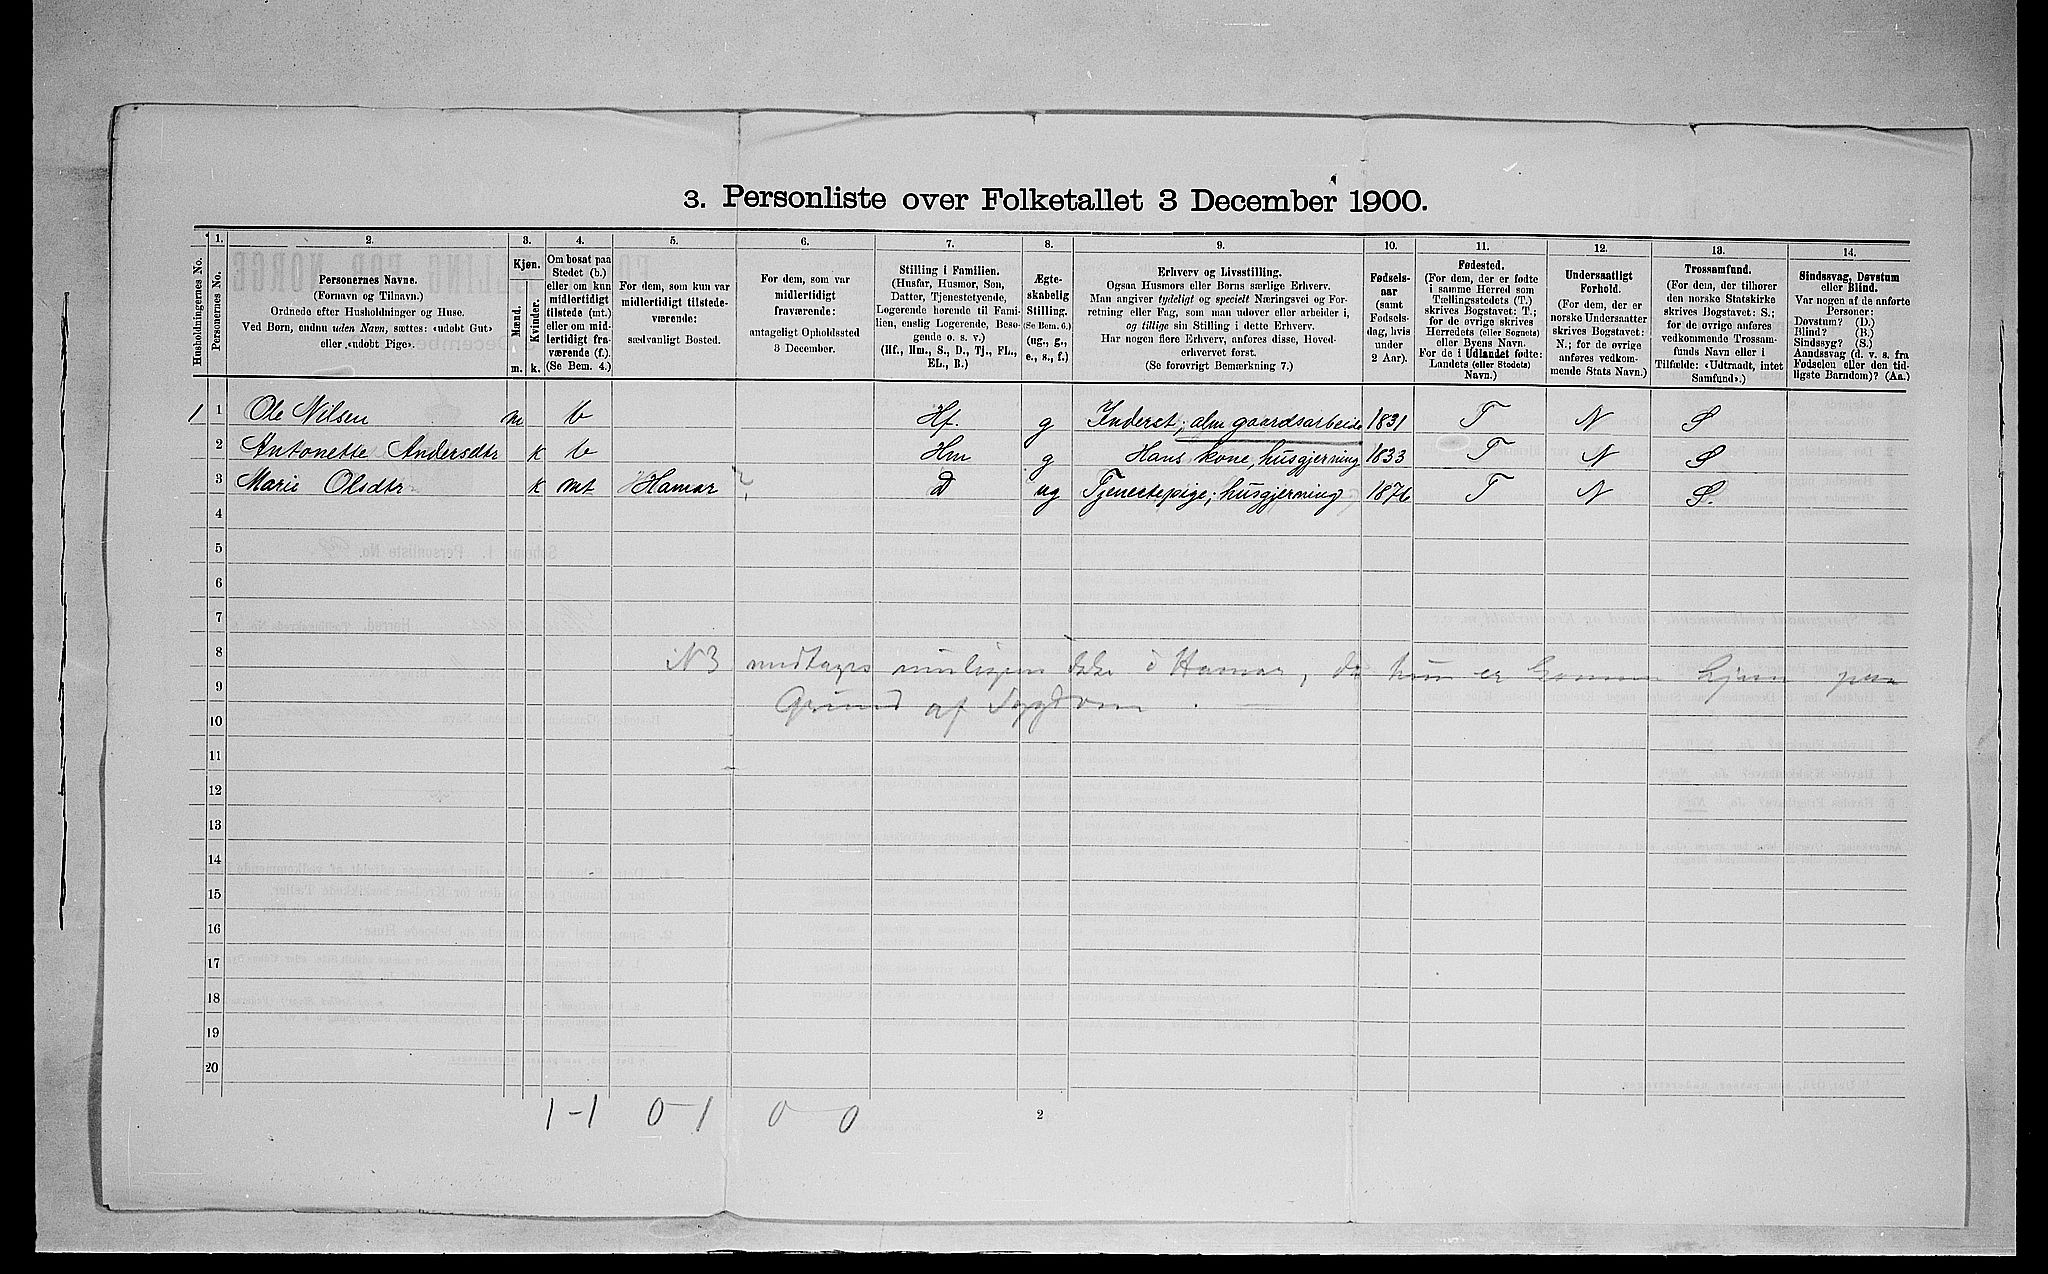 3. Personliste over Folketallet 3 December 1900.
Husholdningernes No.
1.
Personernes No.
2.
Personernes Navne.
(Fornavn og Tilnavn.)
Ordnede efter Husholdninger og Huse.
Ved Børn, endnu uden Navn, sættes: «udøbt Gut»
eller «udøbt Pige».
3.
Kjøn.
Mænd.
Kvinder.
m. k.
4.
Om bosat paa
Stedet (b.)
eller om kun
midlertidigt
tilstede (mt.)
eller om mid-
lertidigt fra-
værende (f.).
(Se Bem. 4.)
5.
For dem, som kun var
midlertidigt tilstede-
værende:
sædvanligt Bosted.
6.
For dem, som var
midlertidigt
fraværende:
antageligt Opholdssted
3 December.
7.
Stilling i Familien.
(Husfar, Husmor, Søn,
Datter, Tjenestetyende,
Logerende hørende til Fami-
lien, enslig Logerende, Besø-
gende o. s. v.)
(Hf., Hm., S., D., Tj., FL.,
EL., B.)
8.
Ægte-
skabelig
Stilling.
(Se Bem. 6.)
(ug., g.,
e., s., f.)
9.
Erhverv og Livsstilling.
Ogsaa Husmors eller Børns særlige Erhverv.
Man angiver tydeligt og specielt Næringsvei og For-
retning eller Fag, som man udover eller arbeider i,
og tillige sin Stilling i dette Erhverv.
Har nogen flere Erhverv, anføres disse, Hoved-
erhvervet først.
(Se forøvrigt Bemærkning 7.)
10.
Fødsels-
aar
(samt
Fødsels-
dag, hvis
under
2 Aar).
11.
Fødested.
(For dem, der er fødte
i samme Herred som
Tællingsstedets (T.)
skrives Bogstavet: T.;
for de øvrige skrives
Herredets (eller Sognets)
eller Byens Navn.
For de i Udlandet fødte:
Landets (eller Stedets)
Navn.)
12.
Undersaatligt
Forhold.
(For dem, der er
norske Undersaatter
skrives Bogstavet:
N.; for de øvrige
anføres vedkom-
mende Stats Navn.)
13.
Trossamfund.
(For dem, der tilhører
den norske Statskirke
skrives Bogstavet: S.;
for de øvrige anføres
vedkommende Trossam-
funds Navn eller i
Tilfælde: «Udtraadt, intet
Samfund».)
14.
Sindssvag, Døvstum
eller Blind.
Var nogen af de anførte
Personer:
Døvstum? (D.)
Blind? (B.)
Sindssyg? (S.)
Aandssvag (d. v. s. fra
Fødselen eller den tid-
ligste Barndom)? (Aa.)
1 1 Ole Nilsen m b Hf. g Inderst; alm gaardsarbeide 1831 T N S
2 Antonette Andersdtr k b Hm g Hans kone, husgjerning 1833 T N S
3 Marie Olsdtr k mt Hamar ? D ug Tjenestepige; husgjerning 1876 T N S.
4
5
6
7
8 N 3 medtages rimeligvis ikke i Hamar, da hun er kommen hjem paa
9 Grund af Sygdom.
10
11
12
13
14
15
16
17
18
19
20
1-1 0-1 0-0
2